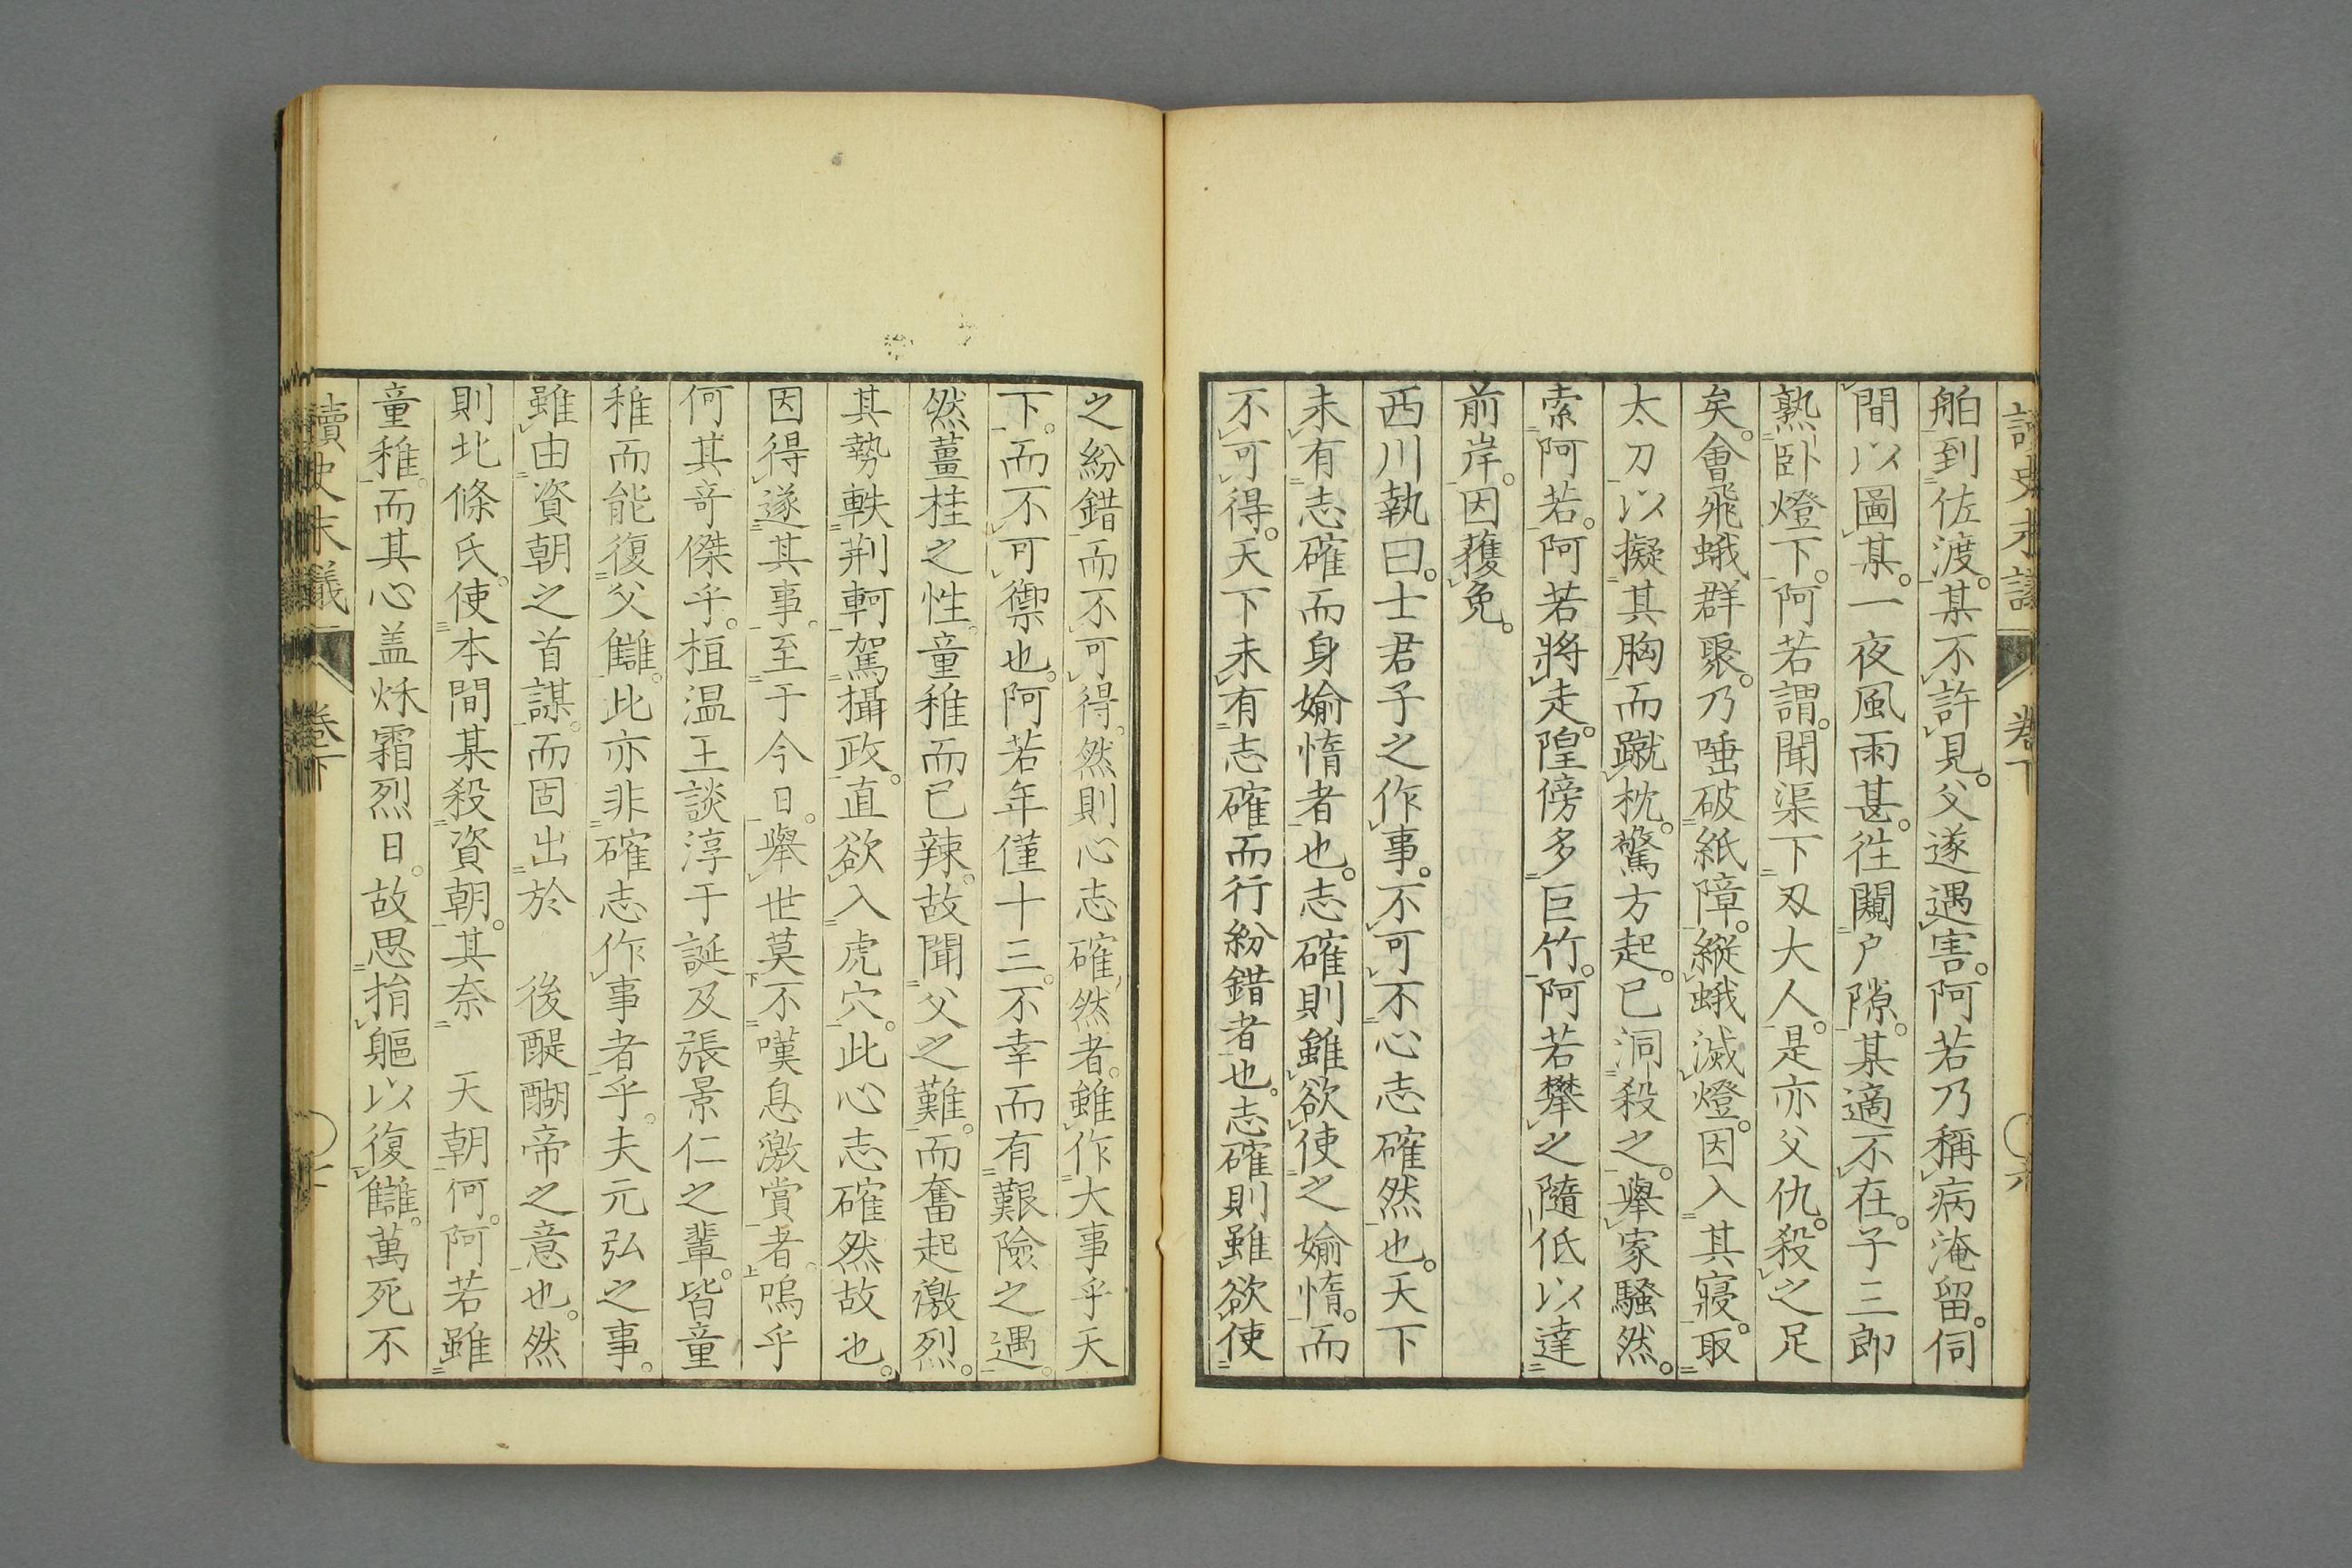 舶到佐渡。某不許見。父遂遇害。阿若乃稱病淹留。伺
間以圖某。一夜風雨甚。往闚户隙。某適不在。子三郎
熟臥燈下。阿若謂。聞渠下刄大人。是亦父仇。殺之足
矣。會飛蛾群聚。乃唾破紙障。縱蛾滅燈。因入其寢。取
太刀以擬其胸而蹴枕。驚方起。已洞殺之。舉家騷然。
索阿若。阿若將走。隍傍多巨竹。阿若攀之隨低以達
前岸。因獲免。
西川執曰。士君子之作事。不可不心志確然也。天下
未有志確而身婾惰者也。志確則雖欲使之婾惰。而
不可得。天下未有志確而行紛錯者也。志確則雖欲使
之紛錯而不可得。然則心志確然者。雖作大事乎天
下。而不可禦也。阿若年僅十三。不幸而有艱險之遇。
然薑桂之性。童稚而已辣。故聞父之難。而奮起激烈。
其勢軼荆軻駕攝政。直欲入虎穴。此心志確然故也。
因得遂其事。至于今日。舉世莫不嘆息激賞者。嗚乎
何其奇傑乎。桓温王談淳于誕及張景仁之輩。皆童
稚而能復父讎。此亦非確志作事者乎。夫元弘之事。
雖由資朝之首謀。而固出於　後醍醐帝之意也。然
則北條氏。使本間某殺資朝。其奈　天朝何。阿若雖
童稚。而其心盖烁霜烈日。故思捐軀以復讎。萬死不
讀史末議　卷下